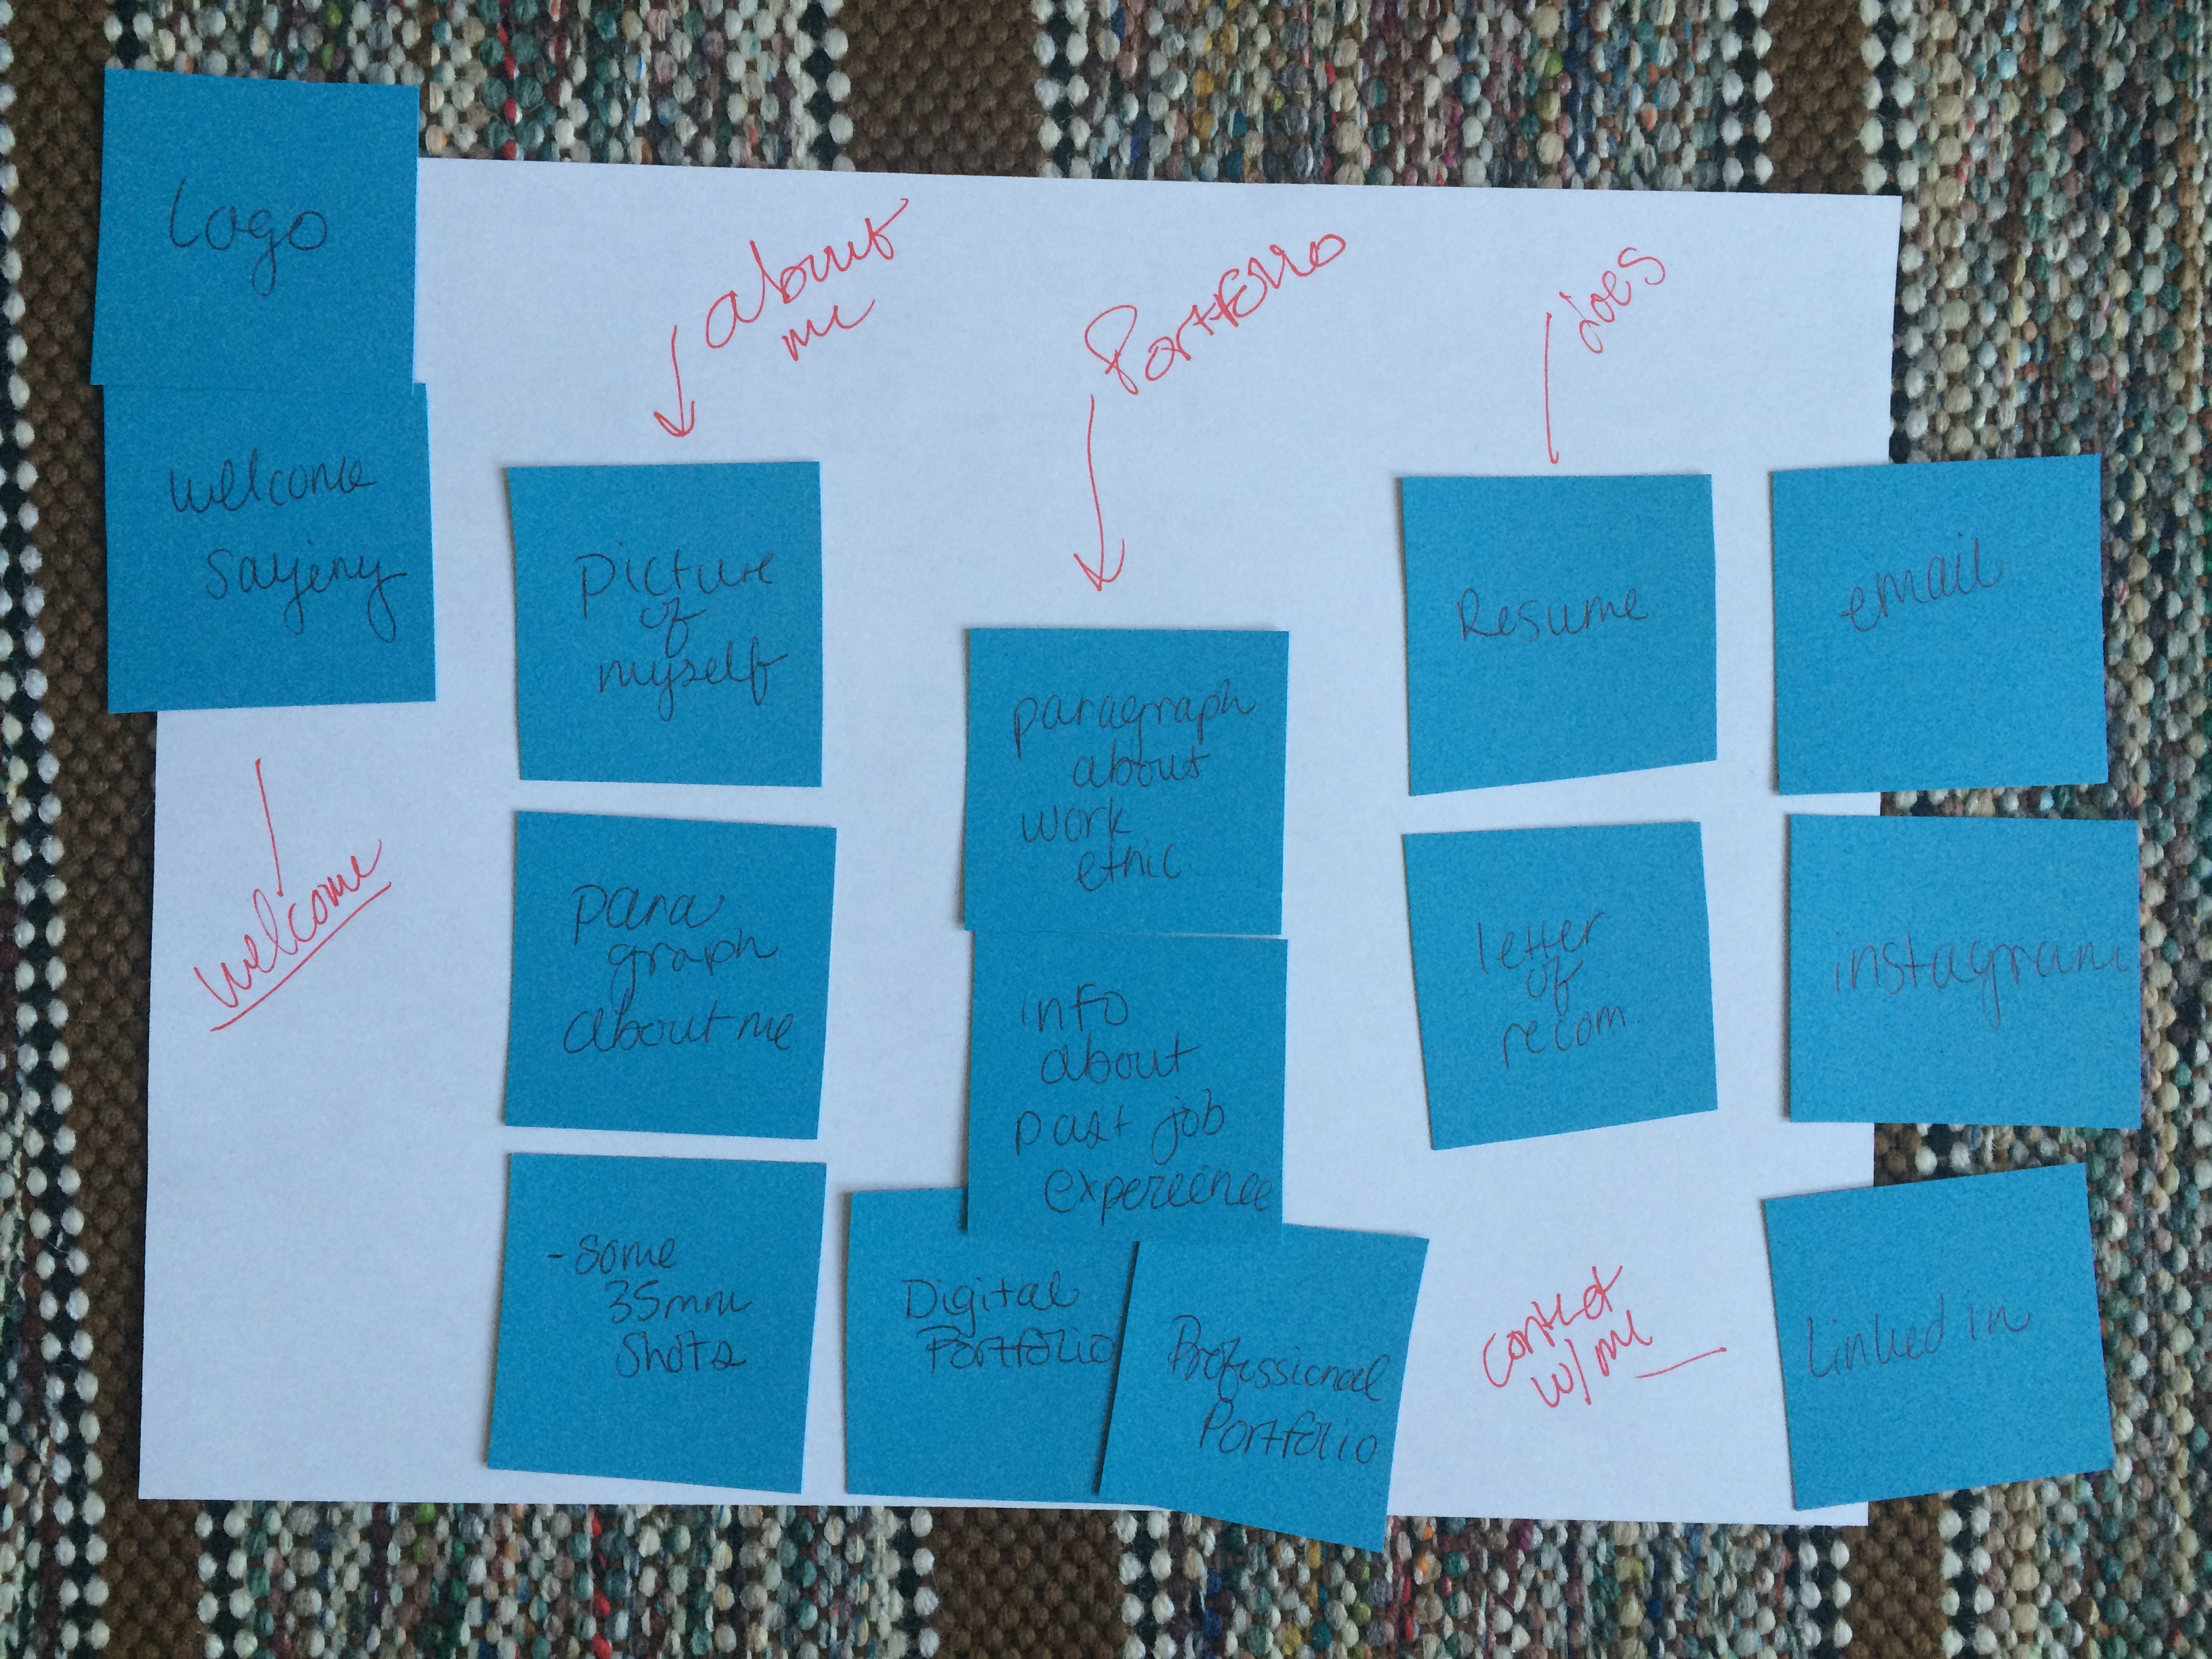 Welcome
Logo
Welcome
Sayieng
about
me
Picture
of
myself
para
graph
about me
- Some
35mm
Shots
Portfolio
paragraph
about
work
ethic
info
about
past job
expereince
Digital
Portfolio
Professional
Portfolio
docs
Resume
letter
of
recom.
Contact
w/ me
email
instagram
Linked in